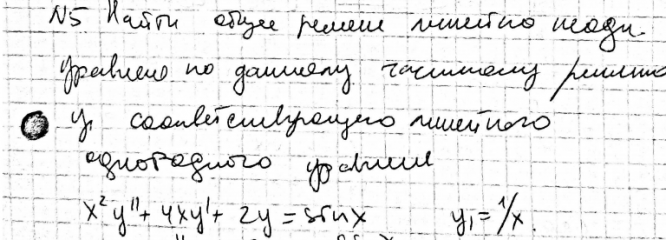 N5 Найти общее решение линейно неодн.
уравнение по данному частному решению
y₁ соответствующего линейного
однородного уравнение
x²y''+4xy'+2y=sinx y₁=1/x.